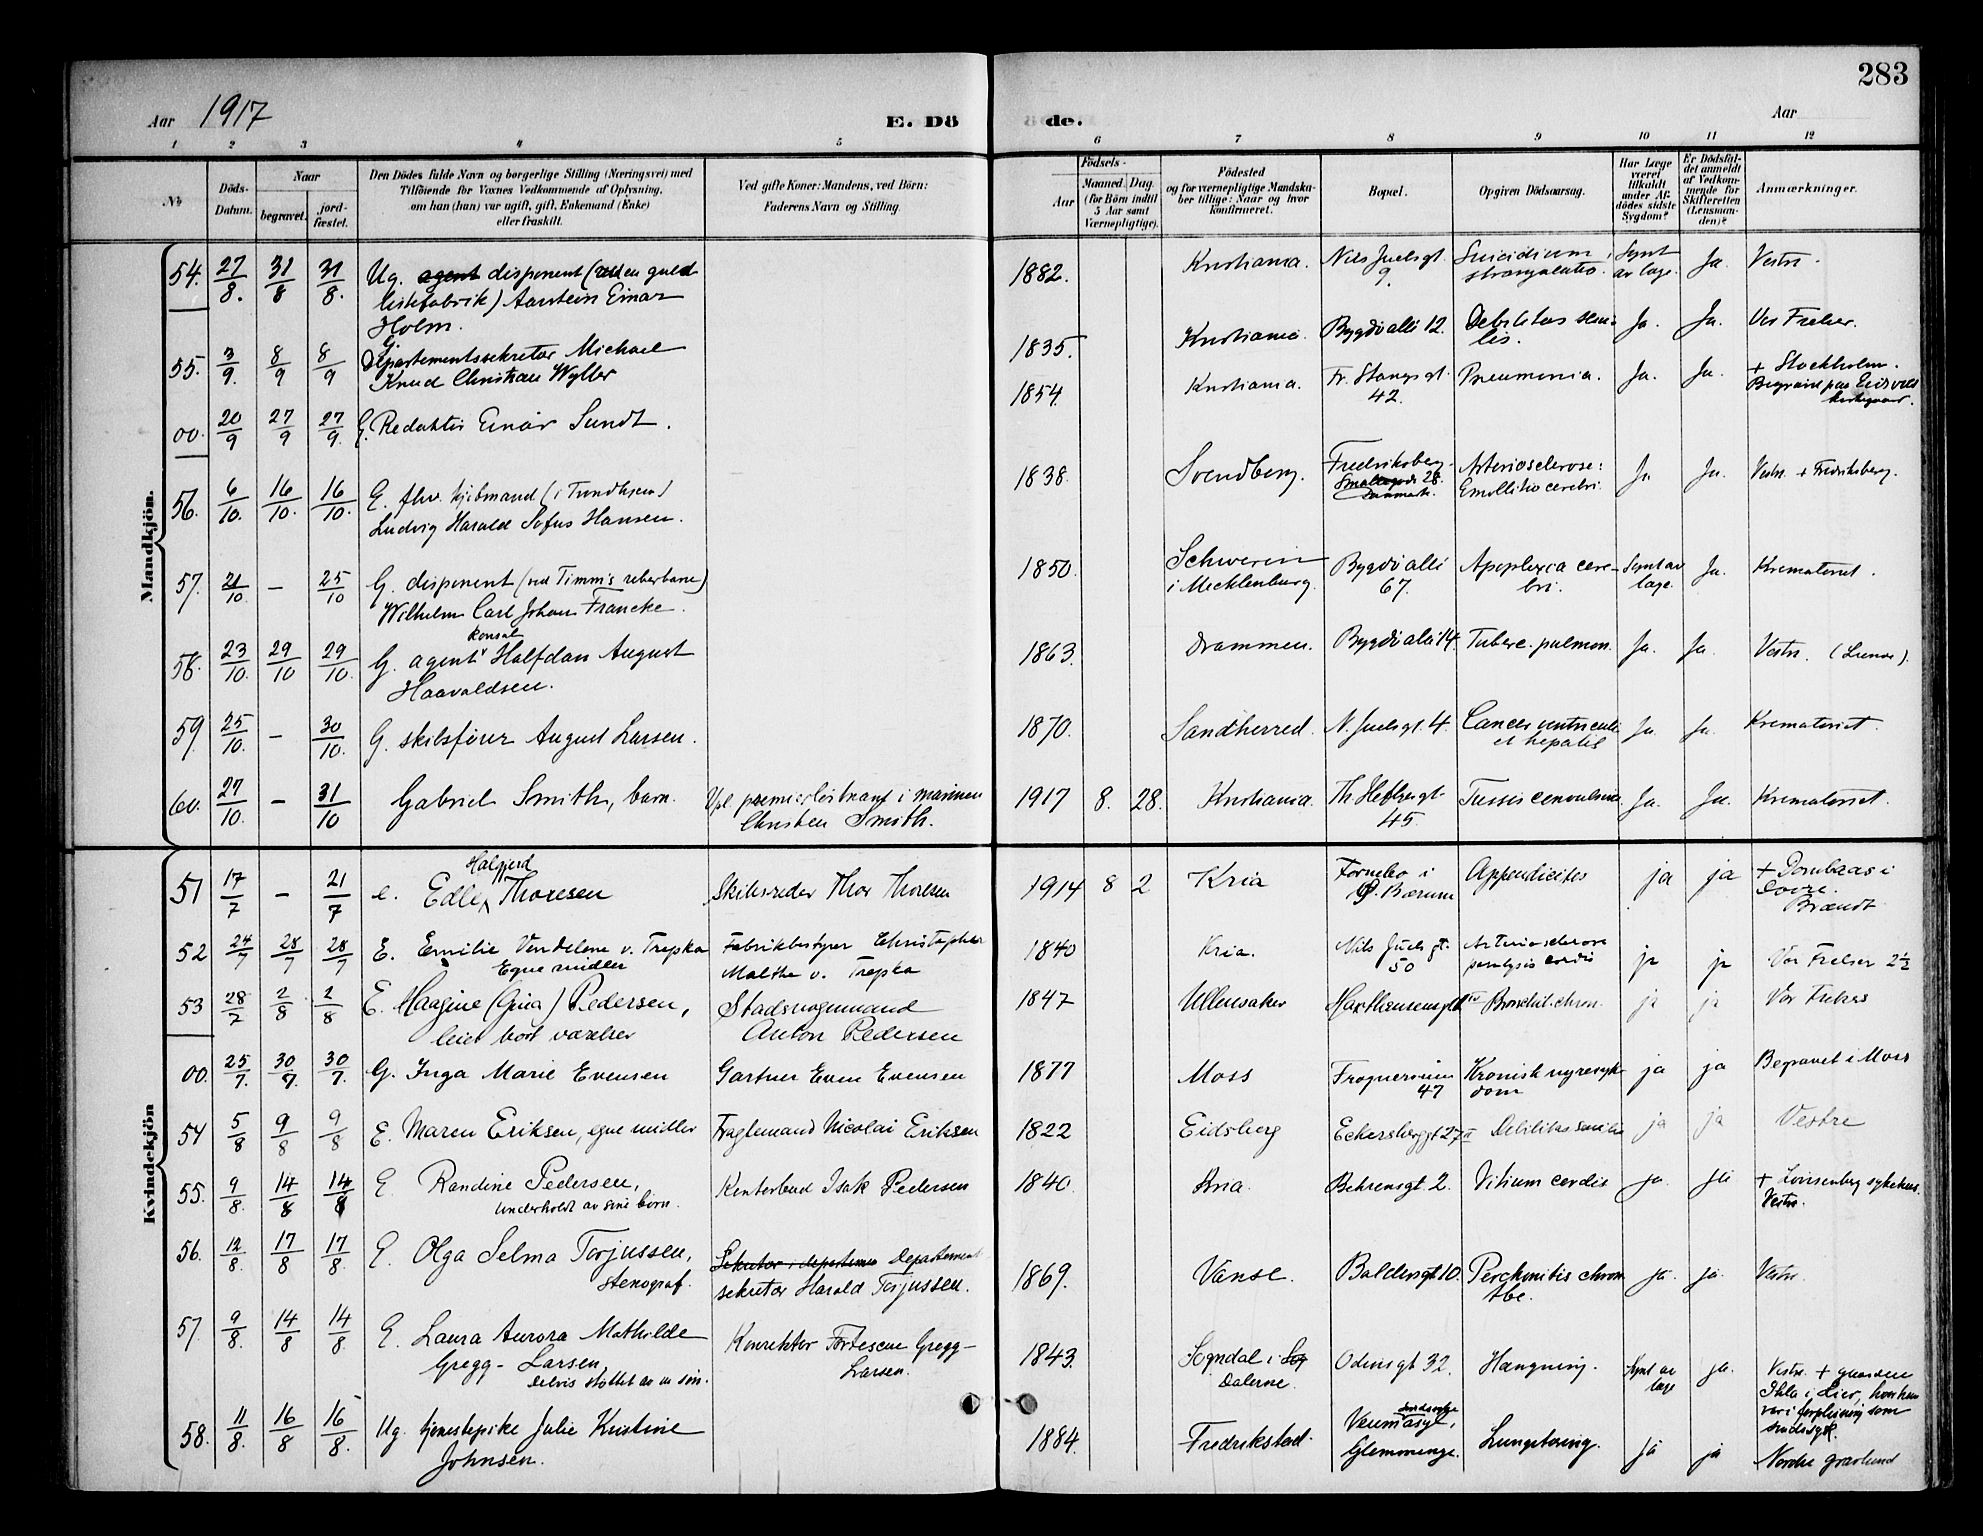 283
Aar 1917
E. Dö
de.
Aar
1 2 3 4 5 6 7 8 9 10 11 12
No
Döds-Datum.
Naar
begravet.
jord-fæstet.
Den Dödes fulde Navn og borgerlige Stilling (Næringsvei) med
Tilföiende for Voxnes Vedkommende af Oplysning,
om han (hun) var ugift, gift, Enkemand (Enke)
eller fraskilt.
Ved gifte Koner: Mandens, ved Börn:
Faderens Navn og Stilling.
Födsels-
Aar
Maaned. Dag.
(for Börn indtil
5 Aar samt
Værnepligtige).
Födested
og for værnepligtige Mandska-
ber tillige: Naar og hvor
konfirmeret.
Bopæl.
Opgiven Dödsaarsag.
Har Læge
været
tilkaldt
under Af-
dödes sidste
Sygdom?
Er Dödsfal-
det anmeldt
af Vedkom-
mende for
Skifteretten
(Lensman-
den)?
Anmærkninger.
Mandkjön.
54. 27/8. 31/8 31/8. Ug. agent disponent ( en guld
listefabrik) Aarstein Einar
Holm.
1882. Kristiania. Nils Juelsgt. 9. Suicidium, strangulatio. Synt av læge. Ja Vestre.
55. 3/9. 8/9 8/9 Departementssekretær Michael
Knud Christian Wyller
1835. Kristiania. Bygdö allé 12. Debilitas seni-
lis. Ja. Ja. Vor Frelser.
00. 20/9 27/9 27/9. G. Redaktör Einar Sundt.
1854. Kristiania. Fr. Stangsgt. 42. Pneumonia. Ja. Ja. + Stockholm.
Begravet paa Eidsvold
kirkegaard.
56. 6/10. 16/10. 16/10. E. fhv. kjöbmand (i Trondhjem)
Ludvig Harald Sofus Hansen.
1838. Svendborg. Fredriksberg.
Smallegade 28.
Danmark. Arteriosclerose:
Emollitio cerebri. Ja Ja. Vestre + Fredriksberg.
57. 21/10. - 25/10 G. disponent (ved Timm's reberbane)
Wilhelm Carl Johan Francke.
1850. Schwerin
i Mecklenburg. Bygdö allé
67. Apoplexia cere-
bri. Synt av
læge. Ja. Krematoriet.
58. 23/10. 29/10 29/10. G. agent konsul Halfdan August
Haavaldsen.
1863. Drammen. Bygdö allé 14. Tuberc. pulmon. Ja. Ja. Vestre.
59. 25/10. - 30/10. G. skibsförer August Larsen.
1870. Sandherred. N. Juelsgt. 4. Cancer ventriculi
et hepatis Ja. Ja. Krematoriet.
60. 27/10. - 31/10 Gabriel Smith, barn. Vpl. premierlöitnant i marinen
Christen Smith.
1917 8. 28. Kristiania. Th. Heftyesgt.
45. Tussis convulsiva Ja. Ja. Krematoriet.
Kvindekjön
51 17/7 - 21/7 e. Edle Halgjerd Thoresen Skibsreder Thor Thoresen
1914 8 2 Kria Fornebo i
Ø. Bærum Appendicites ja ja + Dombaas i
Dovre.
Brændt
52 24/7 28/7 28/7 E. Emilie Vendelene v. Trepka
Egne midler Fabrikbestyrer Christopher
Malthe v. Trepka
1840 Kria. Nils Juels gt.
50 Arteriosclerose
paralysis cordis ja ja Vor Frelser 2½
53 28/7 2/8 2/8 E. Haagine (Gina) Pedersen,
leiet bort værelser Stadsvognmand
Anton Pedersen
1847 Ullensaker Harxthausensgt Bronchit. chron. ja ja Vor Frelsers
00. 25/7. 30/7. 30/7. G. Inga Marie Evensen Gartner Even Evensen
1877 Moss Frognerveien
47 Kronisk nyresyk-
dom ja ja Begravet i Moss
54 5/8 9/8 9/8 E. Maren Eriksen, egne midler Fragtemand Nicolai Eriksen
1822 Eidsberg Eckersberggt 27 II Debilitas senilis ja ja Vestre
55. 9/8. 14/8 14/8 E Randine Pedersen,
underholdt av sine börn. Kontorbud Isak Pedersen
1840. Kria. Behrensgt 2. Vitium cordis ja. ja + Lovisenberg sykehus.
Vestre.
56. 12/8. 17/8 17/8. E Olga Selma Torjussen,
stenograf. Sekretær i departemen Departement
sekretær Harald Torjussen.
1869. Vanse. Baldersgt 10. Peritonitis chron
tbc. ja. ja. Vestre.
57. 9/8. 14/8 14/8. E Laura Aurora Mathilde
Gregg-Larsen,
delvis støttet av en sön. Konrektor Fortescue Gregg-
Larsen.
1843. Sogndal i Sog
Dalerne. Odinsgt 32. Hængning. Synt av
læge ja. Vestre. + gaarden
i Lier, hvor hun
var i forpleining som
sindssyk.
58. 11/8. 16/8 16/8. Ug. tjenestepike Julie Kristine
Johnsen.
1884. Fredrikstad. Veum sindssyke asyl,
Glemminge. Lungetæring. ja ja Nordre gravlund